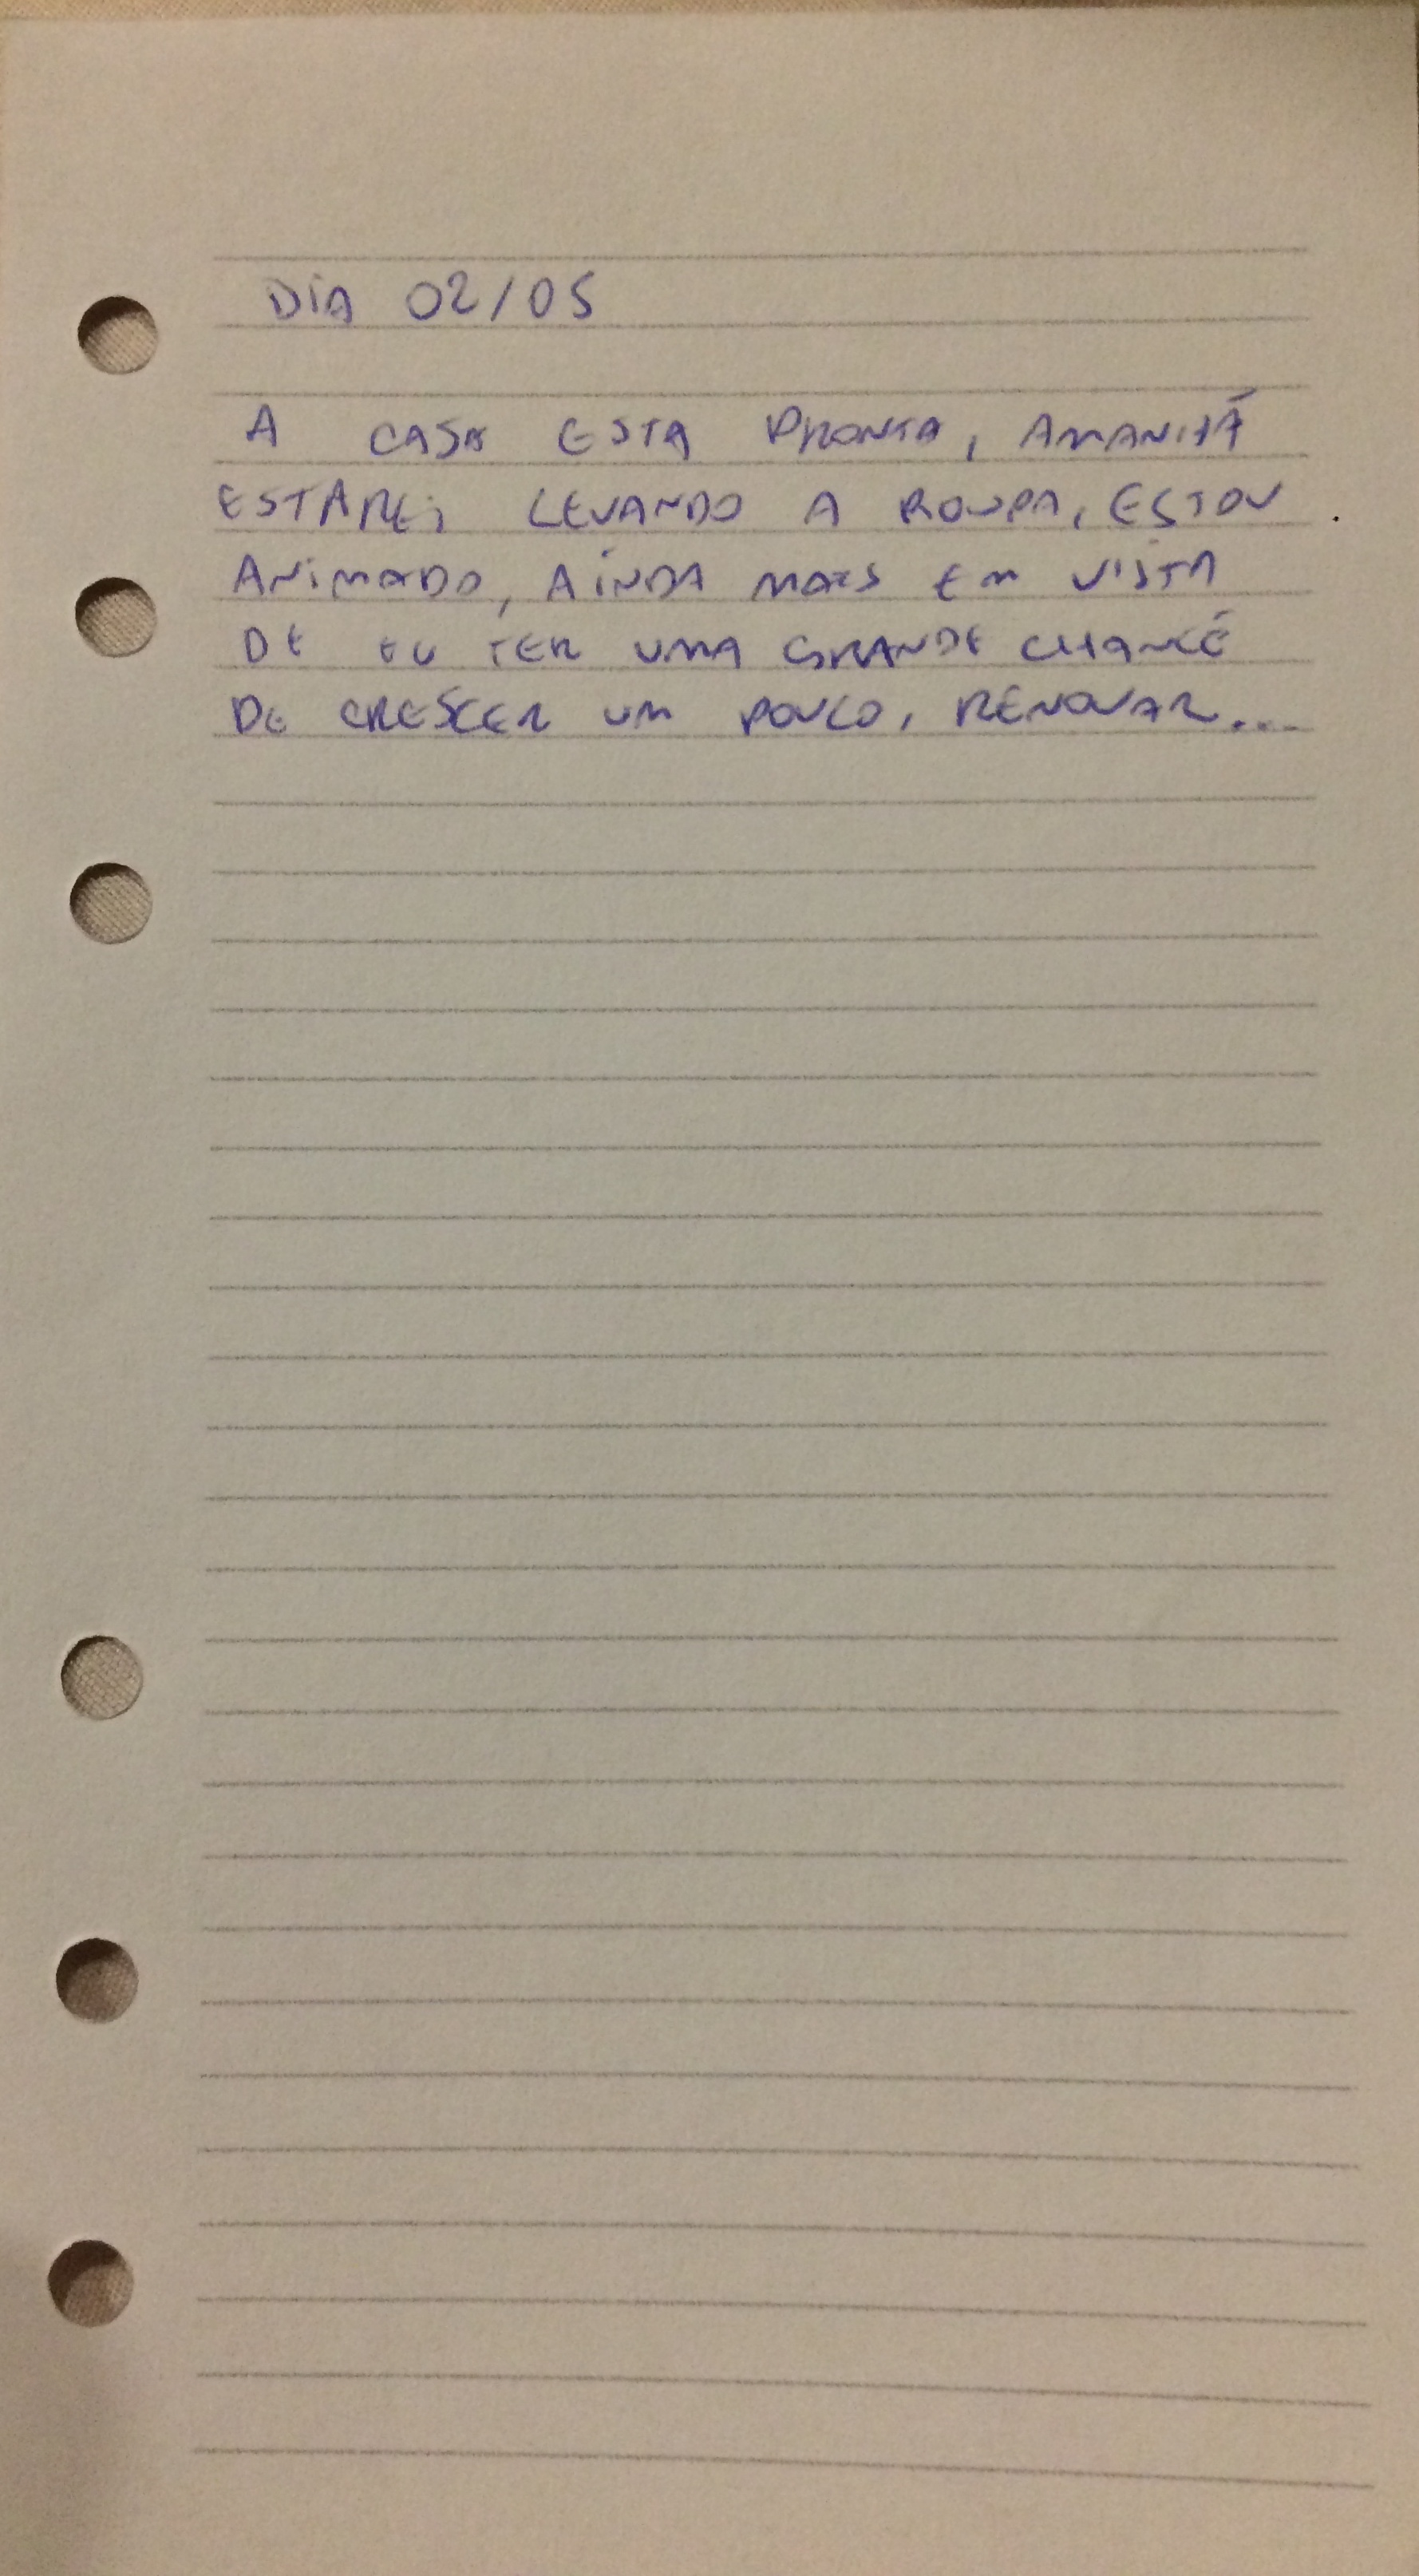 DIA 02/05
A CASA ESTA PRONTA, AMANHÃ
ESTAREI LEVANDO A ROUPA, ESTOU
ANIMADO, AINDA MAIS EM VISTA
DE EU TER UMA GRANDE CHANCE
DE CRESCER UM POUCO, RENOVAR...